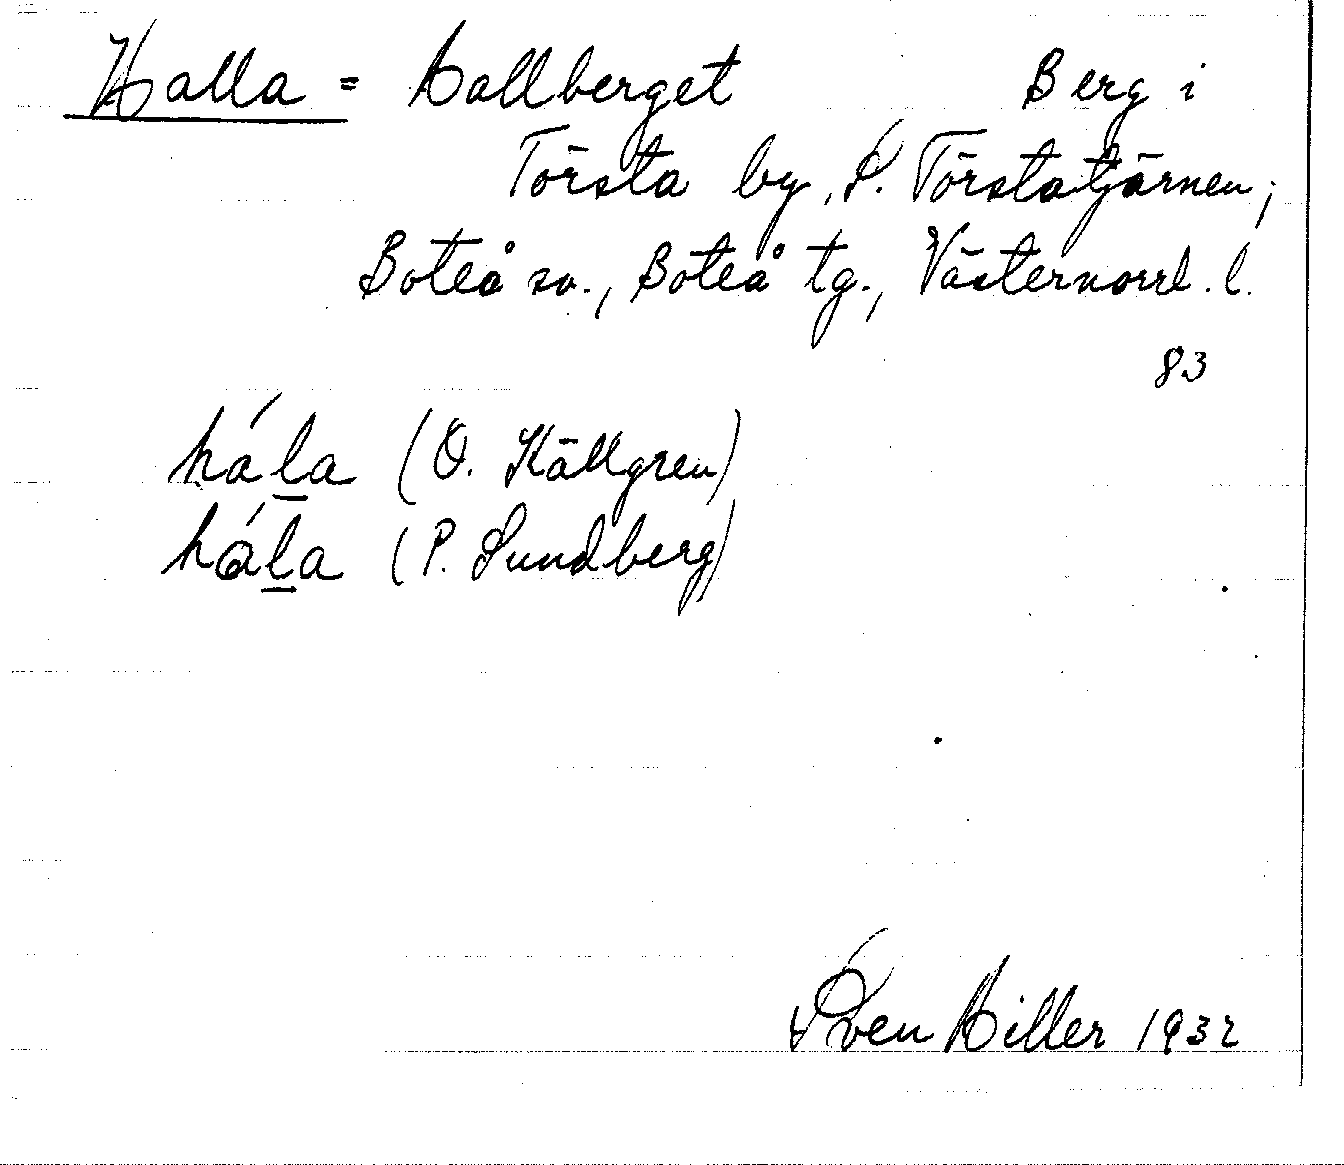 Halla = Hallberget Berg i
Törsta by, S. Törstatjärnen;
Boteå sn., Boteå tg., Västernorrl. l.
83
hála (O. Källgren)
hála (P. Sundberg)
Sven Hiller 1932